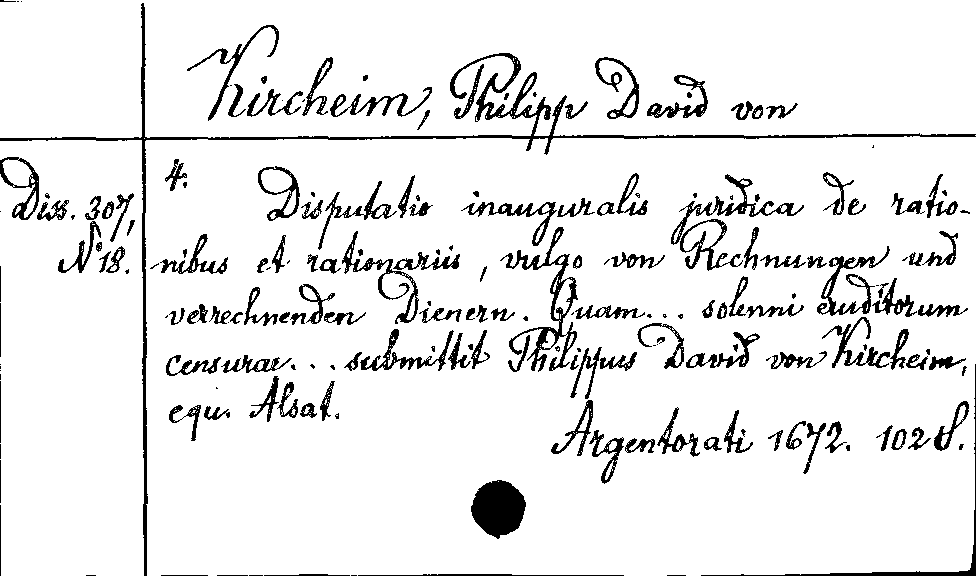 Kircheim, Philipp David von
Diss. 307,
No 18.
4.
Disputatio inauguralis juridica de ratio-
nibus et rationariis, vulgo von Rechnungen und
verrechnenden Dienern. Quam... solenni eruditorum
censurae... submittit Philippus David von Kircheim,
equ. Alsat.
Argentorati 1672. 102 S.